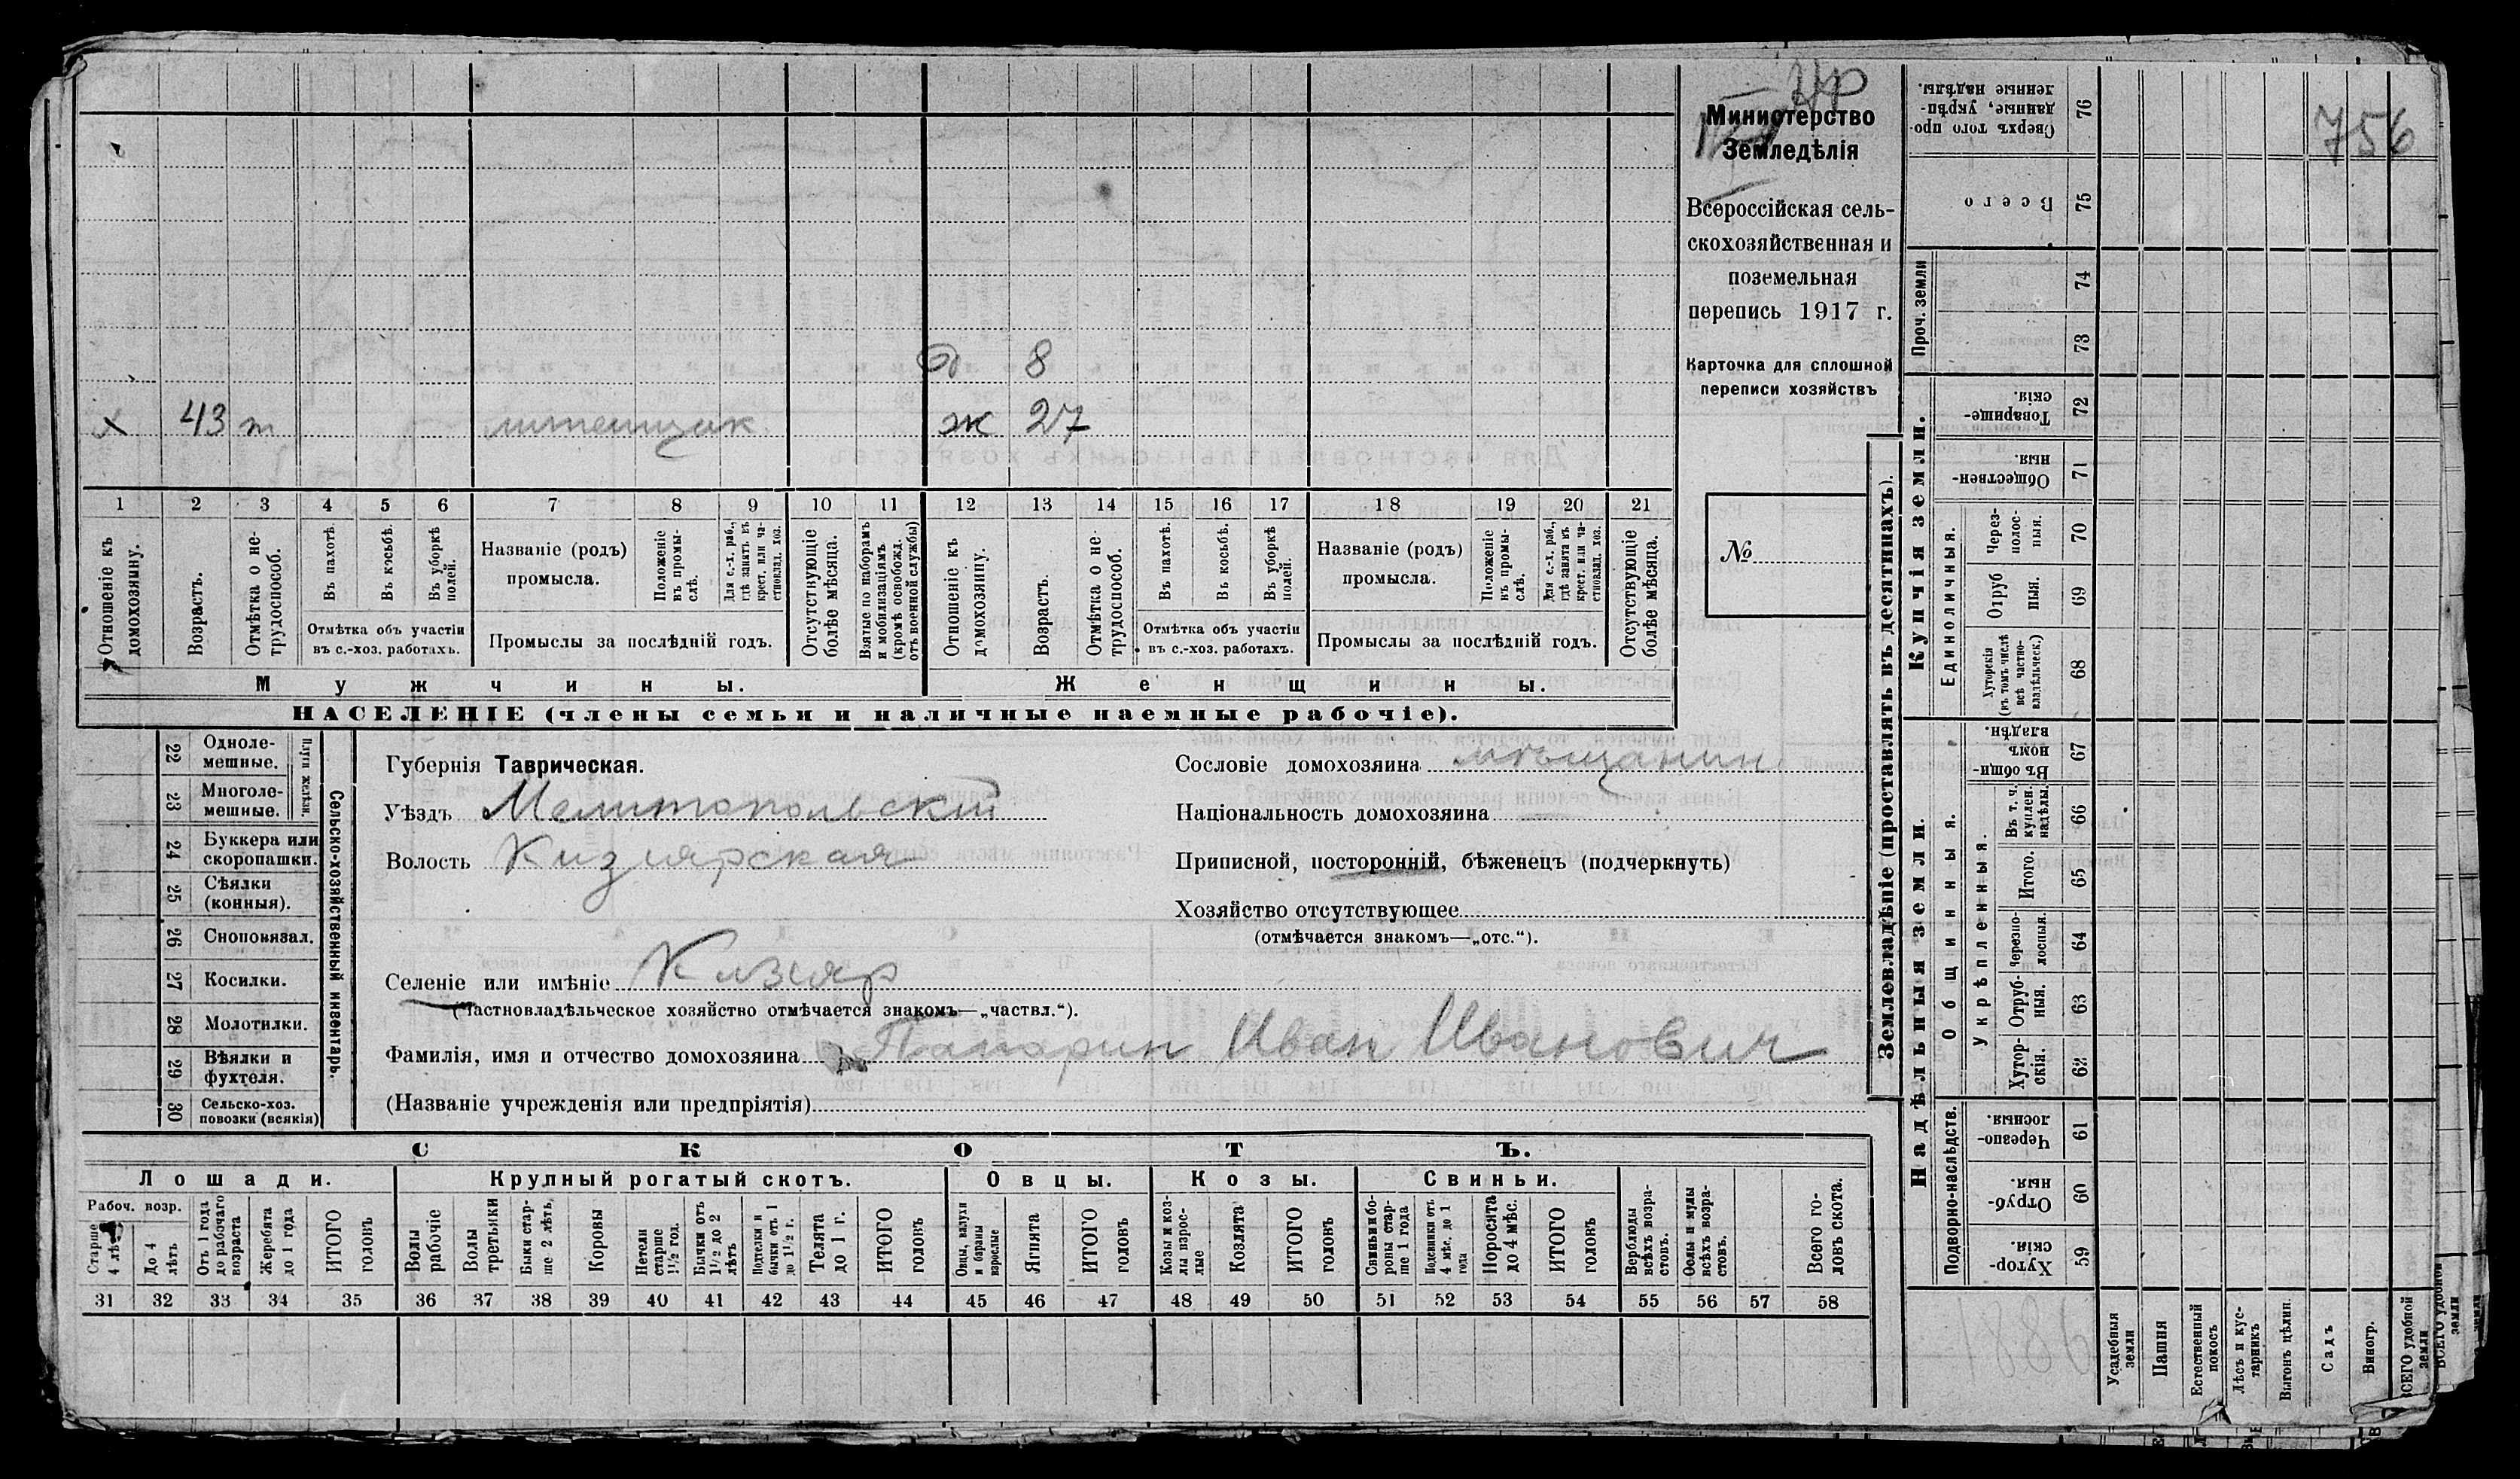 756
Министерство
Земледѣлія
Всероссійская сель-
скохозяйственная и
поземельная
перепись 1917 г.
Карточка для сплошной
переписи хозяйствъ
№
д 8
х 43 т ж 27
1 2 3 4 5 6 7 8 9 10 11 12 13 14 15 16 17 18 19 20 21
Отношеніе къ домохозяину.
Возрастъ.
Отмѣтка о не-трудоспособ.
Въ пахотѣ.
Въ косьбѣ.
Въ уборкѣ полей.
Отмѣтка объ участіи
въ с.-хоз. работахъ.
Названіе (родъ)
промысла.
Положеніе въ промы-слѣ.
Для с.-х. раб., гдѣ занятъ въ крест. или ча-стновлад. хоз.
Промыслы за послѣдній годъ.
Отсутствующіе болѣе мѣсяца.
Взятые по наборамъ и мобилизаціямъ (кромѣ освобожд. отъ военной службы)
Отношеніе къ домохозяину.
Возрастъ.
Отмѣтка о не-трудоспособ.
Въ пахотѣ.
Въ косьбѣ.
Въ уборкѣ полей.
Отмѣтка объ участіи
въ с.-хоз. работахъ.
Названіе (родъ)
промысла.
Положеніе въ промы-слѣ.
Для с.-х. раб., гдѣ занята въ крест. или ча-стновлад. хоз.
Промыслы за послѣдній годъ.
Отсутствующіе болѣе мѣсяца.
Мужчины. Женщины.
НАСЕЛЕНІЕ (члены семьи и наличные наемные рабочіе).
22 Одноле-мешные.
23 Многоле-мешные.
24 Буккера или скоропашки.
25 Сѣялки (конныя).
26 Сноповязал.
27 Косилки.
28 Молотилки.
29 Вѣялки и фухтеля.
30 Сельско-хоз. повозки (всякія)
Сельско-хозяйственный инвентарь.
Губернія Таврическая.
Уѣздъ Мелитопольскій
Волость Кизіярская
Селеніе или имѣніе Кизіяр
(Частновладѣльческое хозяйство отмѣчается знакомъ—„частвл.“).
Фамилія, имя и отчество домохозяина Папарин Иван Иванович
(Названіе учрежденія или предпріятія)
Сословіе домохозяина мѣщанин
Національность домохозяина
Приписной, посторонній, бѣженецъ (подчеркнуть)
Хозяйство отсутствующее
(отмѣчается знакомъ—„отс.“).
СКОТЪ.
Лошади. Крупный рогатый скотъ. Овцы. Козы. Свиньи.
Рабоч. возр.
Старше 4 лѣтъ
До 4 лѣтъ
Отъ 1 года до рабочаго возраста
Жеребята до 1 года
ИТОГО головъ
Волы рабочіе
Волы третьяки
Быки стар-ше 2 лѣтъ
Коровы
Нетели старше 1½ год.
Бычки отъ 1½ до 2 лѣтъ
Подтелки и бычки отъ 1 до 1½ г.
Телята до 1 г.
ИТОГО головъ
Овцы, валухи и бараны взрослые
Ягнята
ИТОГО головъ
Козы и коз-лы взрос-лые
Козлята
ИТОГО головъ
Свиньи и бо-ровы стар-ше 1 года
Подсвинки отъ 4 мѣс. до 1 года
Поросята до 4 мѣс.
ИТОГО головъ
Верблюды всѣхъ возра-стовъ.
Ослы и мулы всѣхъ возра-стовъ.
Всего го-ловъ скота.
31 32 33 34 35 36 37 38 39 40 41 42 43 44 45 46 47 48 49 50 51 52 53 54 55 56 57 58
Землевладѣніе (проставлять въ десятинахъ).
Сверхъ того про-данные, укрѣп-ленные надѣлы. 76
Всего 75
Проч. земли 74
73
Купчія земли.
Товарище-скія. 72
Обществен-ныя. 71
Единоличныя.
Через-полос-ныя. 70
Отруб-ныя. 69
Хуторскія (въ томъ числѣ всѣ частно-владѣльческ.) 68
Надѣльныя земли.
Общинныя.
Въ общин-номъ владѣн. 67
Укрѣпленныя.
Въ т. ч. куплен. надѣлы. 66
Итого. 65
Черезпо-лосныя. 64
Отруб-ныя. 63
Хутор-скія. 62
Подворно-наслѣдств.
Черезпо-лосныя. 61
Отруб-ныя. 60
Хутор-скія. 59
Усадебныя земли
Пашня
Естественный покосъ
Лѣсъ и кус-тарникъ
Выгонъ цѣлин.
Садъ
Виногр.
ВСЕГО удобной земли